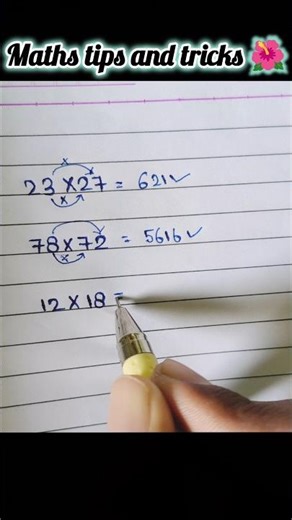 Maths tips and tricks 🌺
23 x 27 = 621 ✓
78 x 72 = 5616 ✓
12 x 18 =